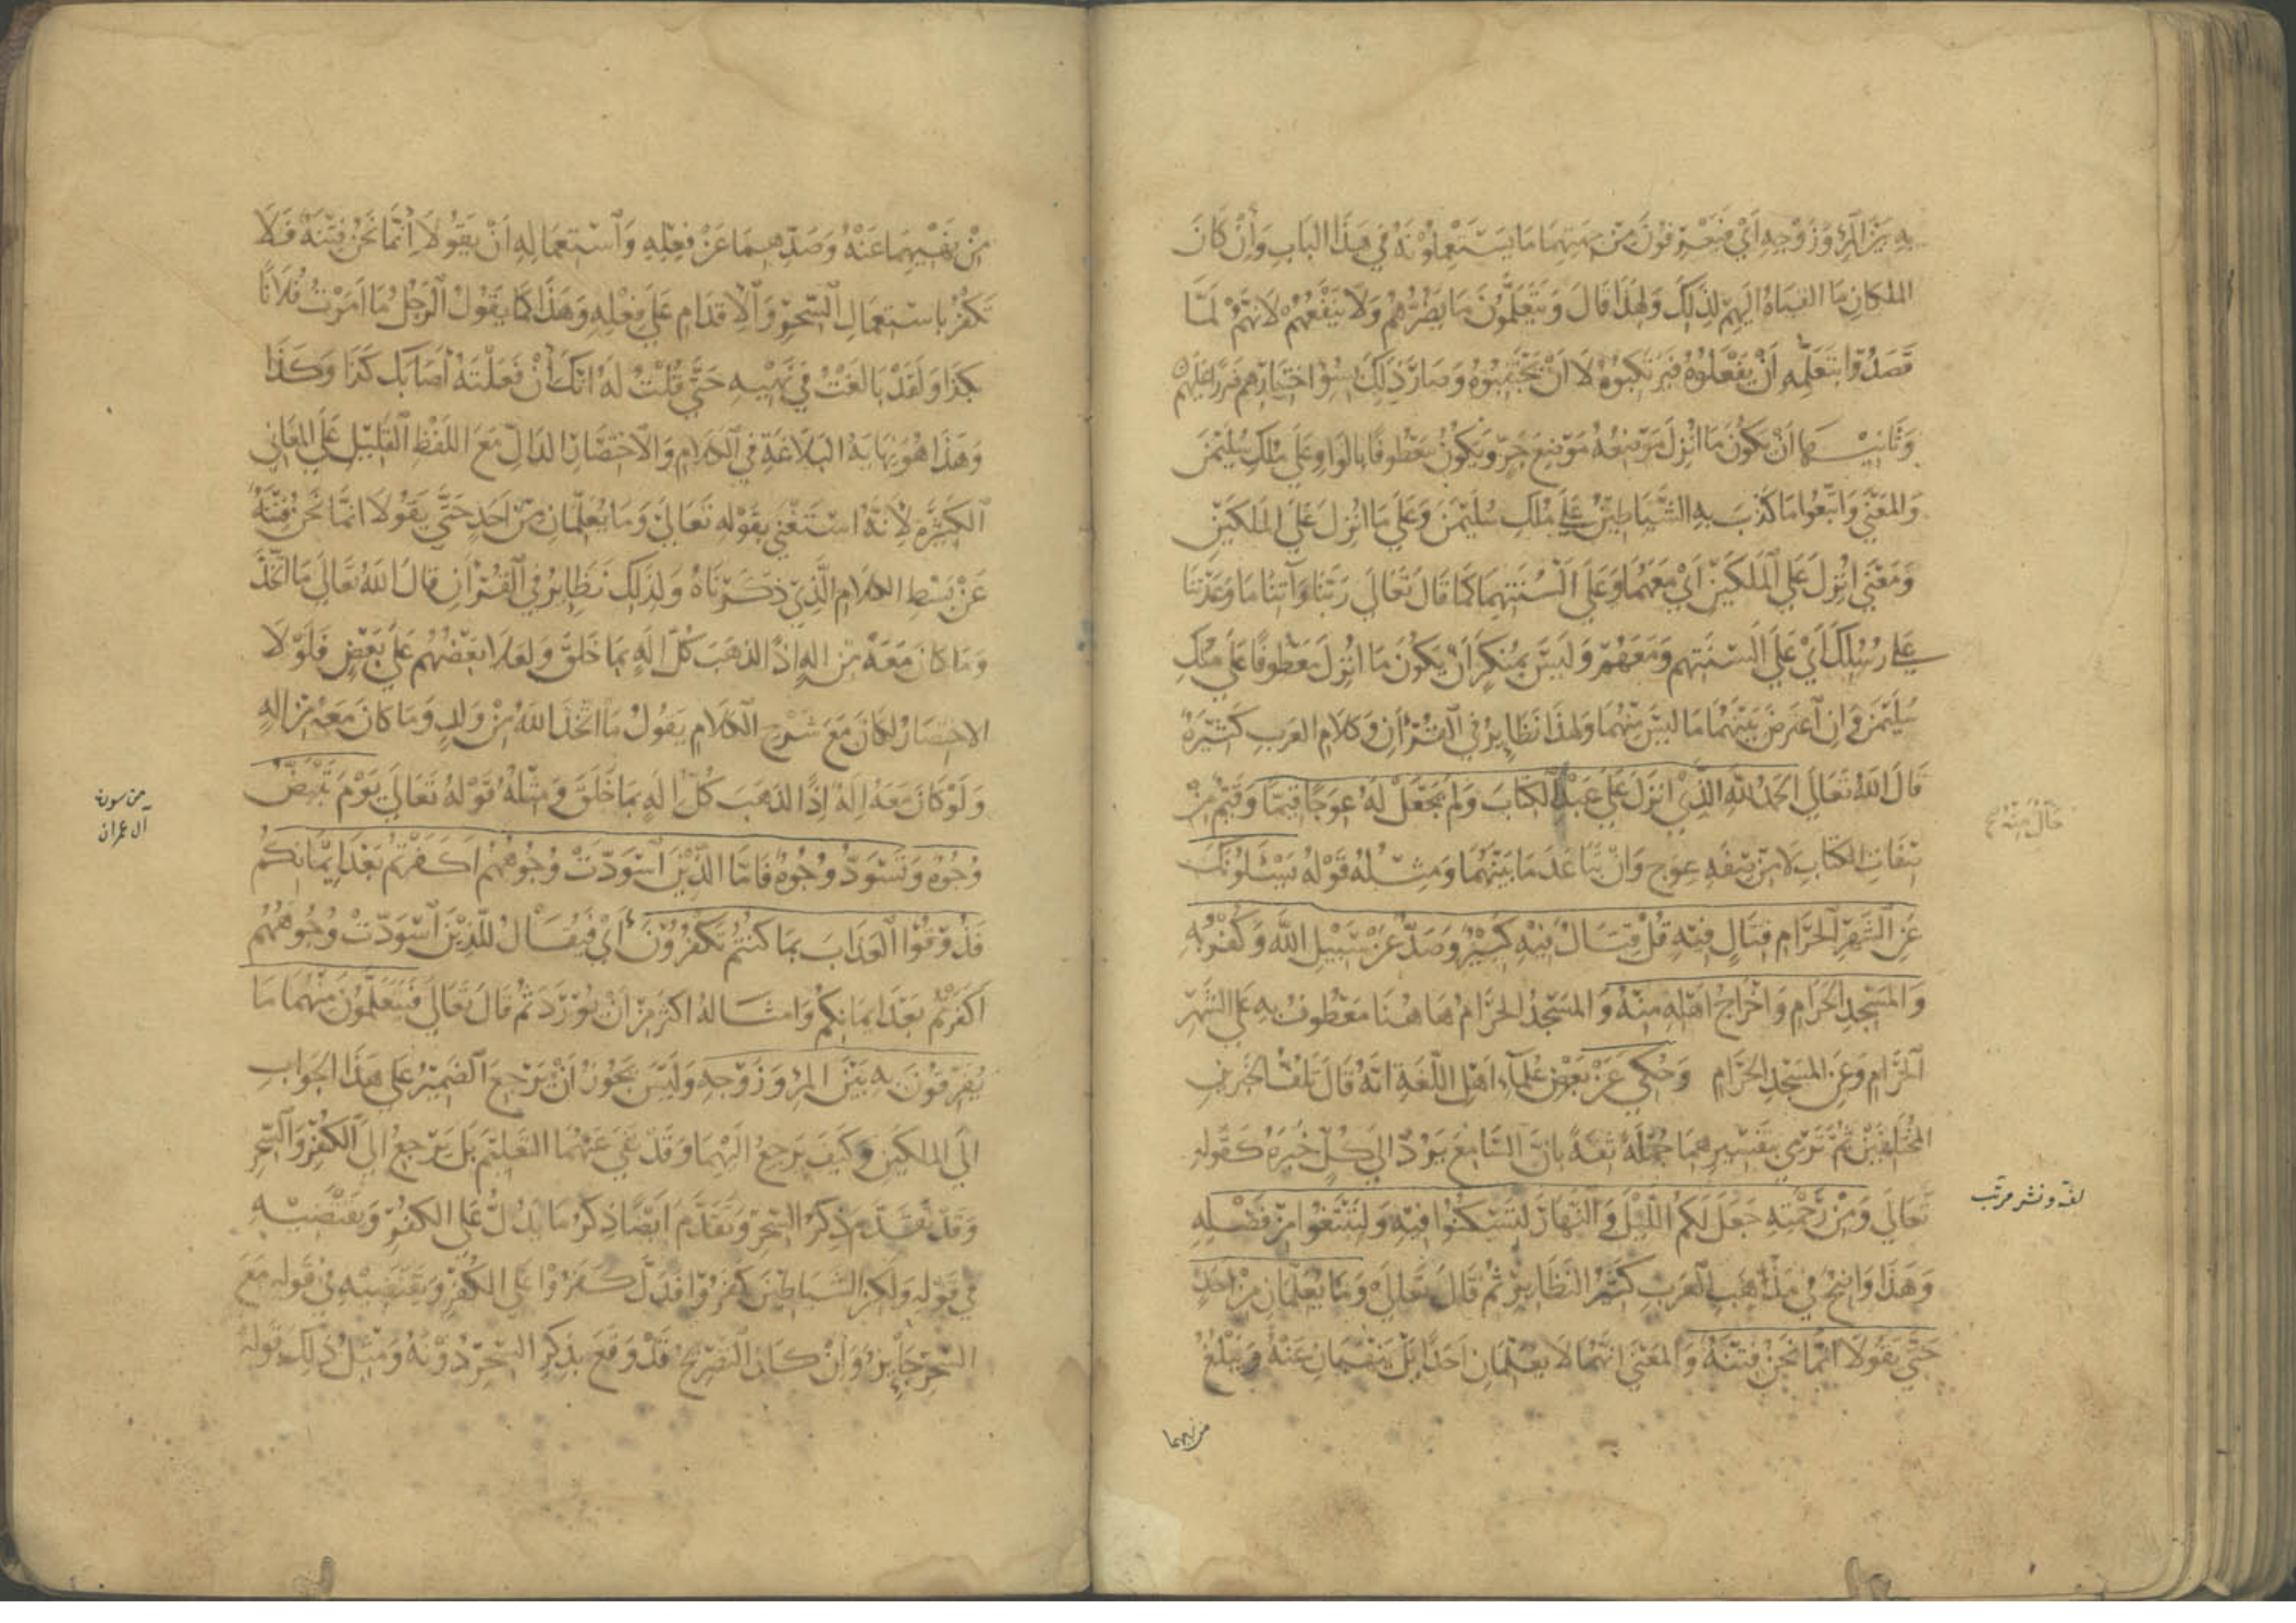 به بين المرء وزوجه أي فيعرفون من جهتهما ما يستعملونه في هذا الباب وإن كان
الملكان ما القياه اليهم لذلك ولهذا قال ويتعلمون ما يضرهم ولا ينفعهم لانهم لما
قصدوا بتعلمه أن يفعلوه فيرتكبوه لا ان يجتنبوه وصار ذلك لسوء اختيارهم ضررا عليهم
وثانيـــها أن يكون ما انزل موضعه موضع جر ويكون معطوفا بالواو على ملك سليمن
والمعنى واتبعوا ما كذب به الشياطين على ملك سليمن وعلى ما انزل على الملكين
ومعنى انزل على الملكين أي معهما وعلى ألسنتهما كما قال تعالى ربنا وآتنا ما وعدتنا
على رسلك أي على ألسنتهم ومعهم وليس بمنكر أن يكون ما انزل معطوفا على ملك
سليمن وان اعترض بينهما ما ليس منهما ولهذا نظاير في القرآن وكلام العرب كثيرة
قال الله تعالى الحمد لله الذي انزل على عبده الكتاب ولم يجعل له عوجا قيما وقيم من
صفات الكتاب لا من صفة عوج وان تباعد ما بينهما ومثله قوله يسئلونك
عن الشهر الحرام قتال فيه قل قتال فيه كبير وصد عن سبيل الله وكفر به
والمسجد الحرام واخراج اهله منه والمسجد الحرام هاهنا معطوف به على الشهر
الحرام وعن المسجد الحرام وحكي عن بعض علماء اهل اللغة انه قال تلف الخبرين
المختلفين ثم ترمى بتفسيرهما جملة ثقة بان السامع يرد الى كل خبره كقوله
تعالى ومن رحمته جعل لكم الليل والنهار لتسكنوا فيه ولتبتغوا من فضله
وهذا واضح في مذاهب العرب كثير النظاير ثم قال تعالى وما يعلمان من احد
حتى يقولا انما نحن فتنة والمعنى انهما لا يعلمان احدا بل ينهيان عنه ويبلغ
من نهيهما
حال منه
لف ونشر مرتب
من نهيهما عنه وصدهما عن فعله واستعماله ان يقولا انما نحن فتنة فلا
تكفر باستعمال السحر والاقدام على فعله وهذا كما يقول الرجل ما امرت فلانا
بكذا ولقد بالغت في نهيه حتى قلت له انك ان فعلته أصابك كذا وكذا
وهذا هو نهاية البلاغة في الكلام والاختصار الدال مع اللفظ القليل على المعاني
الكثيرة لأنه استغنى بقوله تعالى وما يعلمان من احد حتى يقولا انما نحن فتنة
عن بسط الكلام الذي ذكرناه ولذلك نظاير في القرآن قال الله تعالى ما اتخذ الله من ولد
وما كان معه من اله إذا لذهب كل اله بما خلق ولعلا بعضهم على بعض فلولا
الاختصار لكان مع شرح الكلام يقول ما اتخذ الله من ولد وما كان معه من اله
ولو كان معه إله إذا لذهب كل اله بما خلق ومثله قوله تعالى يوم تبيض
وجوه وتسود وجوه فاما الذين اسودت وجوههم اكفرتم بعد ايمانكم
فذوقوا العذاب بما كنتم تكفرون أي فيقال للذين اسودت وجوههم
أكفرتم بعد ايمانكم وامثاله اكثر من ان يورد ثم قال تعالى فيتعلمون منهما ما
يفرقون به بين المرء وزوجه وليس يجوز ان يرجع الضمير على هذا الجواب
الى الملكين وكيف يرجع اليهما وقد نفى عنهما التعليم بل يرجع الى الكفر والسحر
وقد تقدم ذكر السحر وتقدم ايضا ذكر ما يدل على الكفر ويقتضيه
في قوله ولكن الشياطين كفروا فدل كفروا على الكفر ويقتضيه في قوله مع
السحر جايز وان كان التصريح قد وقع بذكر السحر دونه ومثل ذلك قوله
من سورة
آل عمران